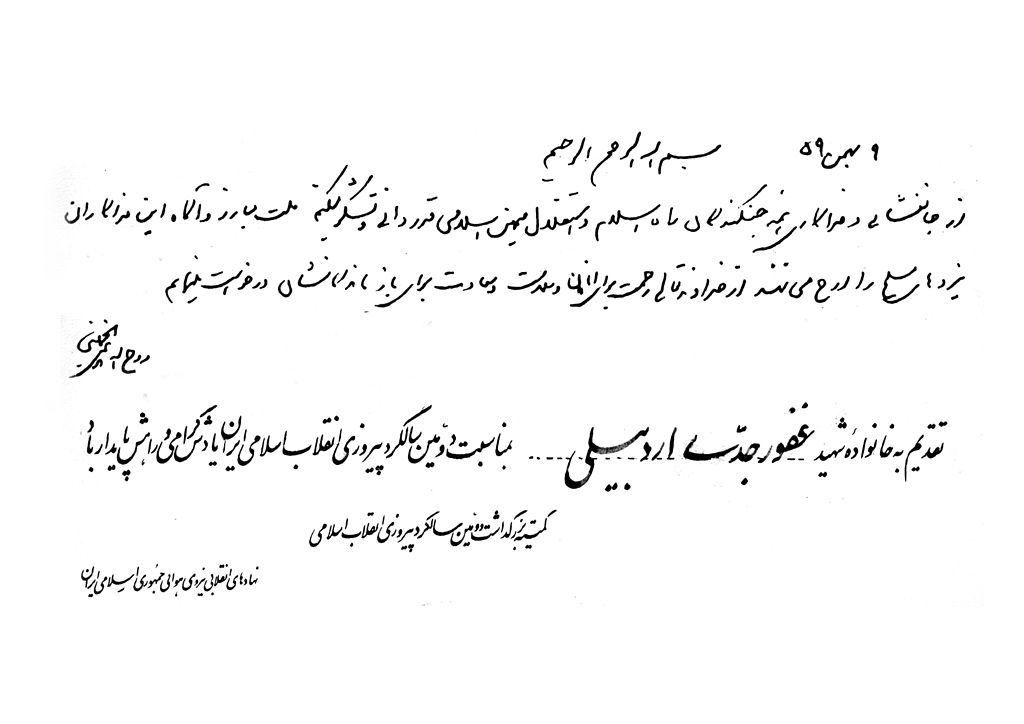 ۹ بهمن ۵۹ بسم الله الرحمن الرحیم
از جانفشانی و فداکاری همه جنگندگان راه اسلام و استقلال میهن اسلامی قدردانی و تشکر میکنم ملت مبارز و آگاه این فداکاران
نیروهای مسلح را ارج می نهند از خداوند تعالی رحمت برای آنان و سلامت و سعادت برای بازماندگانشان درخواست مینمایم
روح الله الموسوی الخمینی
تقدیم به خانوادهٔ شهید غفور جدّی اردبیلی بمناسبت دوّمین سالگرد پیروزی انقلاب اسلامی ایران یادش گرامی و راهش پایدار باد
کمیته بزرگداشت دوّمین سالگرد پیروزی انقلاب اسلامی
نهادهای انقلابی نیروی هوائی جمهوری اسلامی ایران